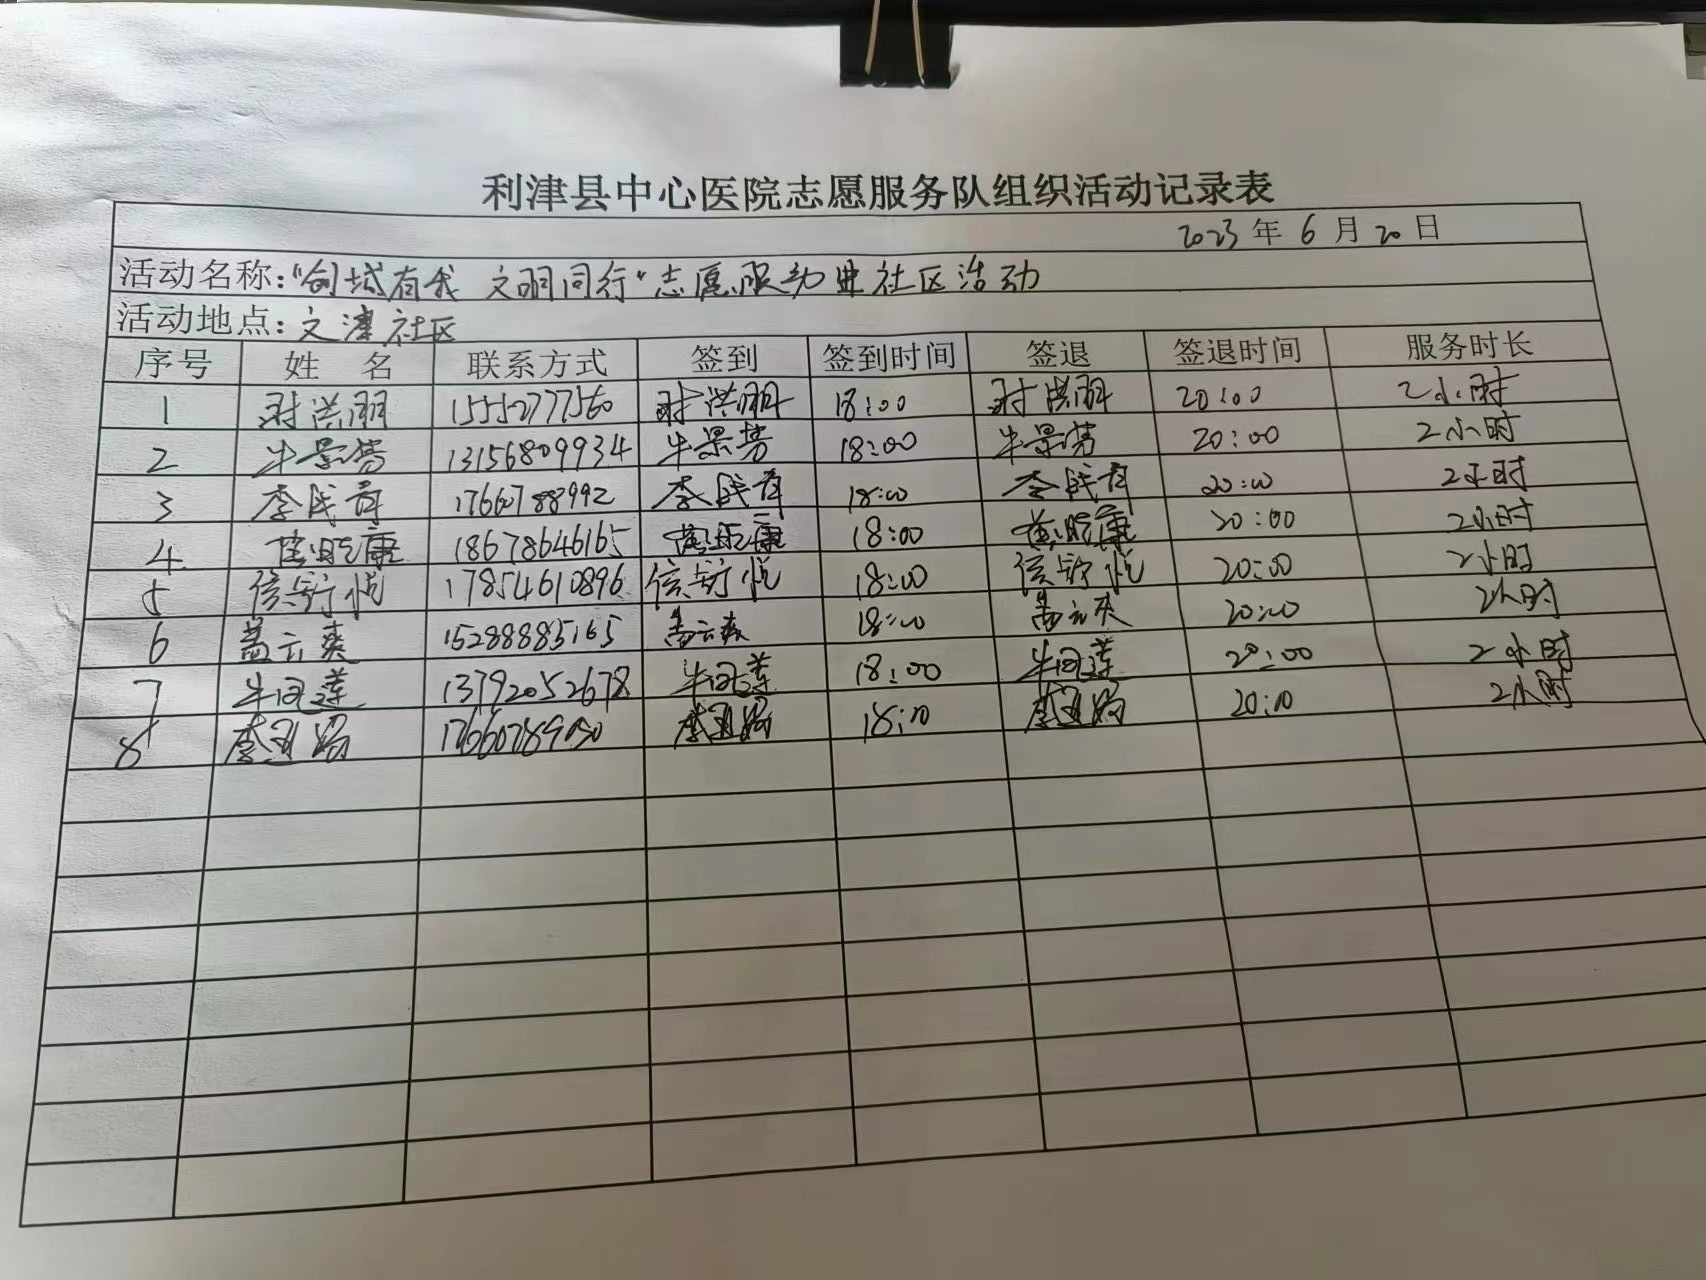 利津县中心医院志愿服务队组织活动记录表
2023年6月20日
活动名称:"创城有我 文明同行"志愿服务进社区活动
活动地点:文津社区
序号 姓 名 联系方式 签到 签到时间 签退 签退时间 服务时长
1 15552777560 18:00 20:00 2小时
2 牛景芳 13156809934 牛景芳 18:00 牛景芳 20:00 2小时
3 17660788992 18:00 20:00 2小时
4 18678646165 18:00 20:00 2小时
5 17854610896 18:00 20:00 2小时
6 盖云爽 15288885165 盖云爽 18:00 盖云爽 20:00 2小时
7 牛同莲 13792052678 牛同莲 18:00 牛同莲 20:00 2小时
8 18:00 20:00 2小时